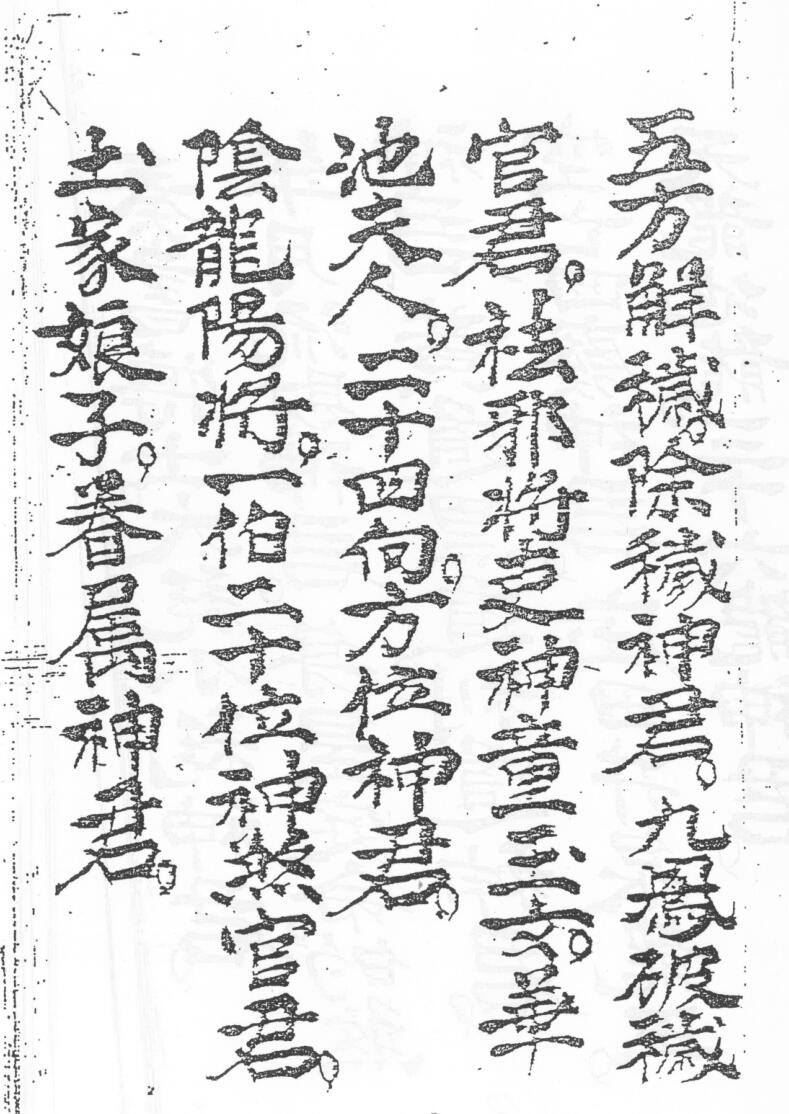 五方解穢。除穢神君。九鳳破穢
官君。祛邪將吏。神童玉女。華
池夫人。二十四向。方位神君。
陰龍陽將。一伯二十位神煞官君。
土家娘子。眷属神君。